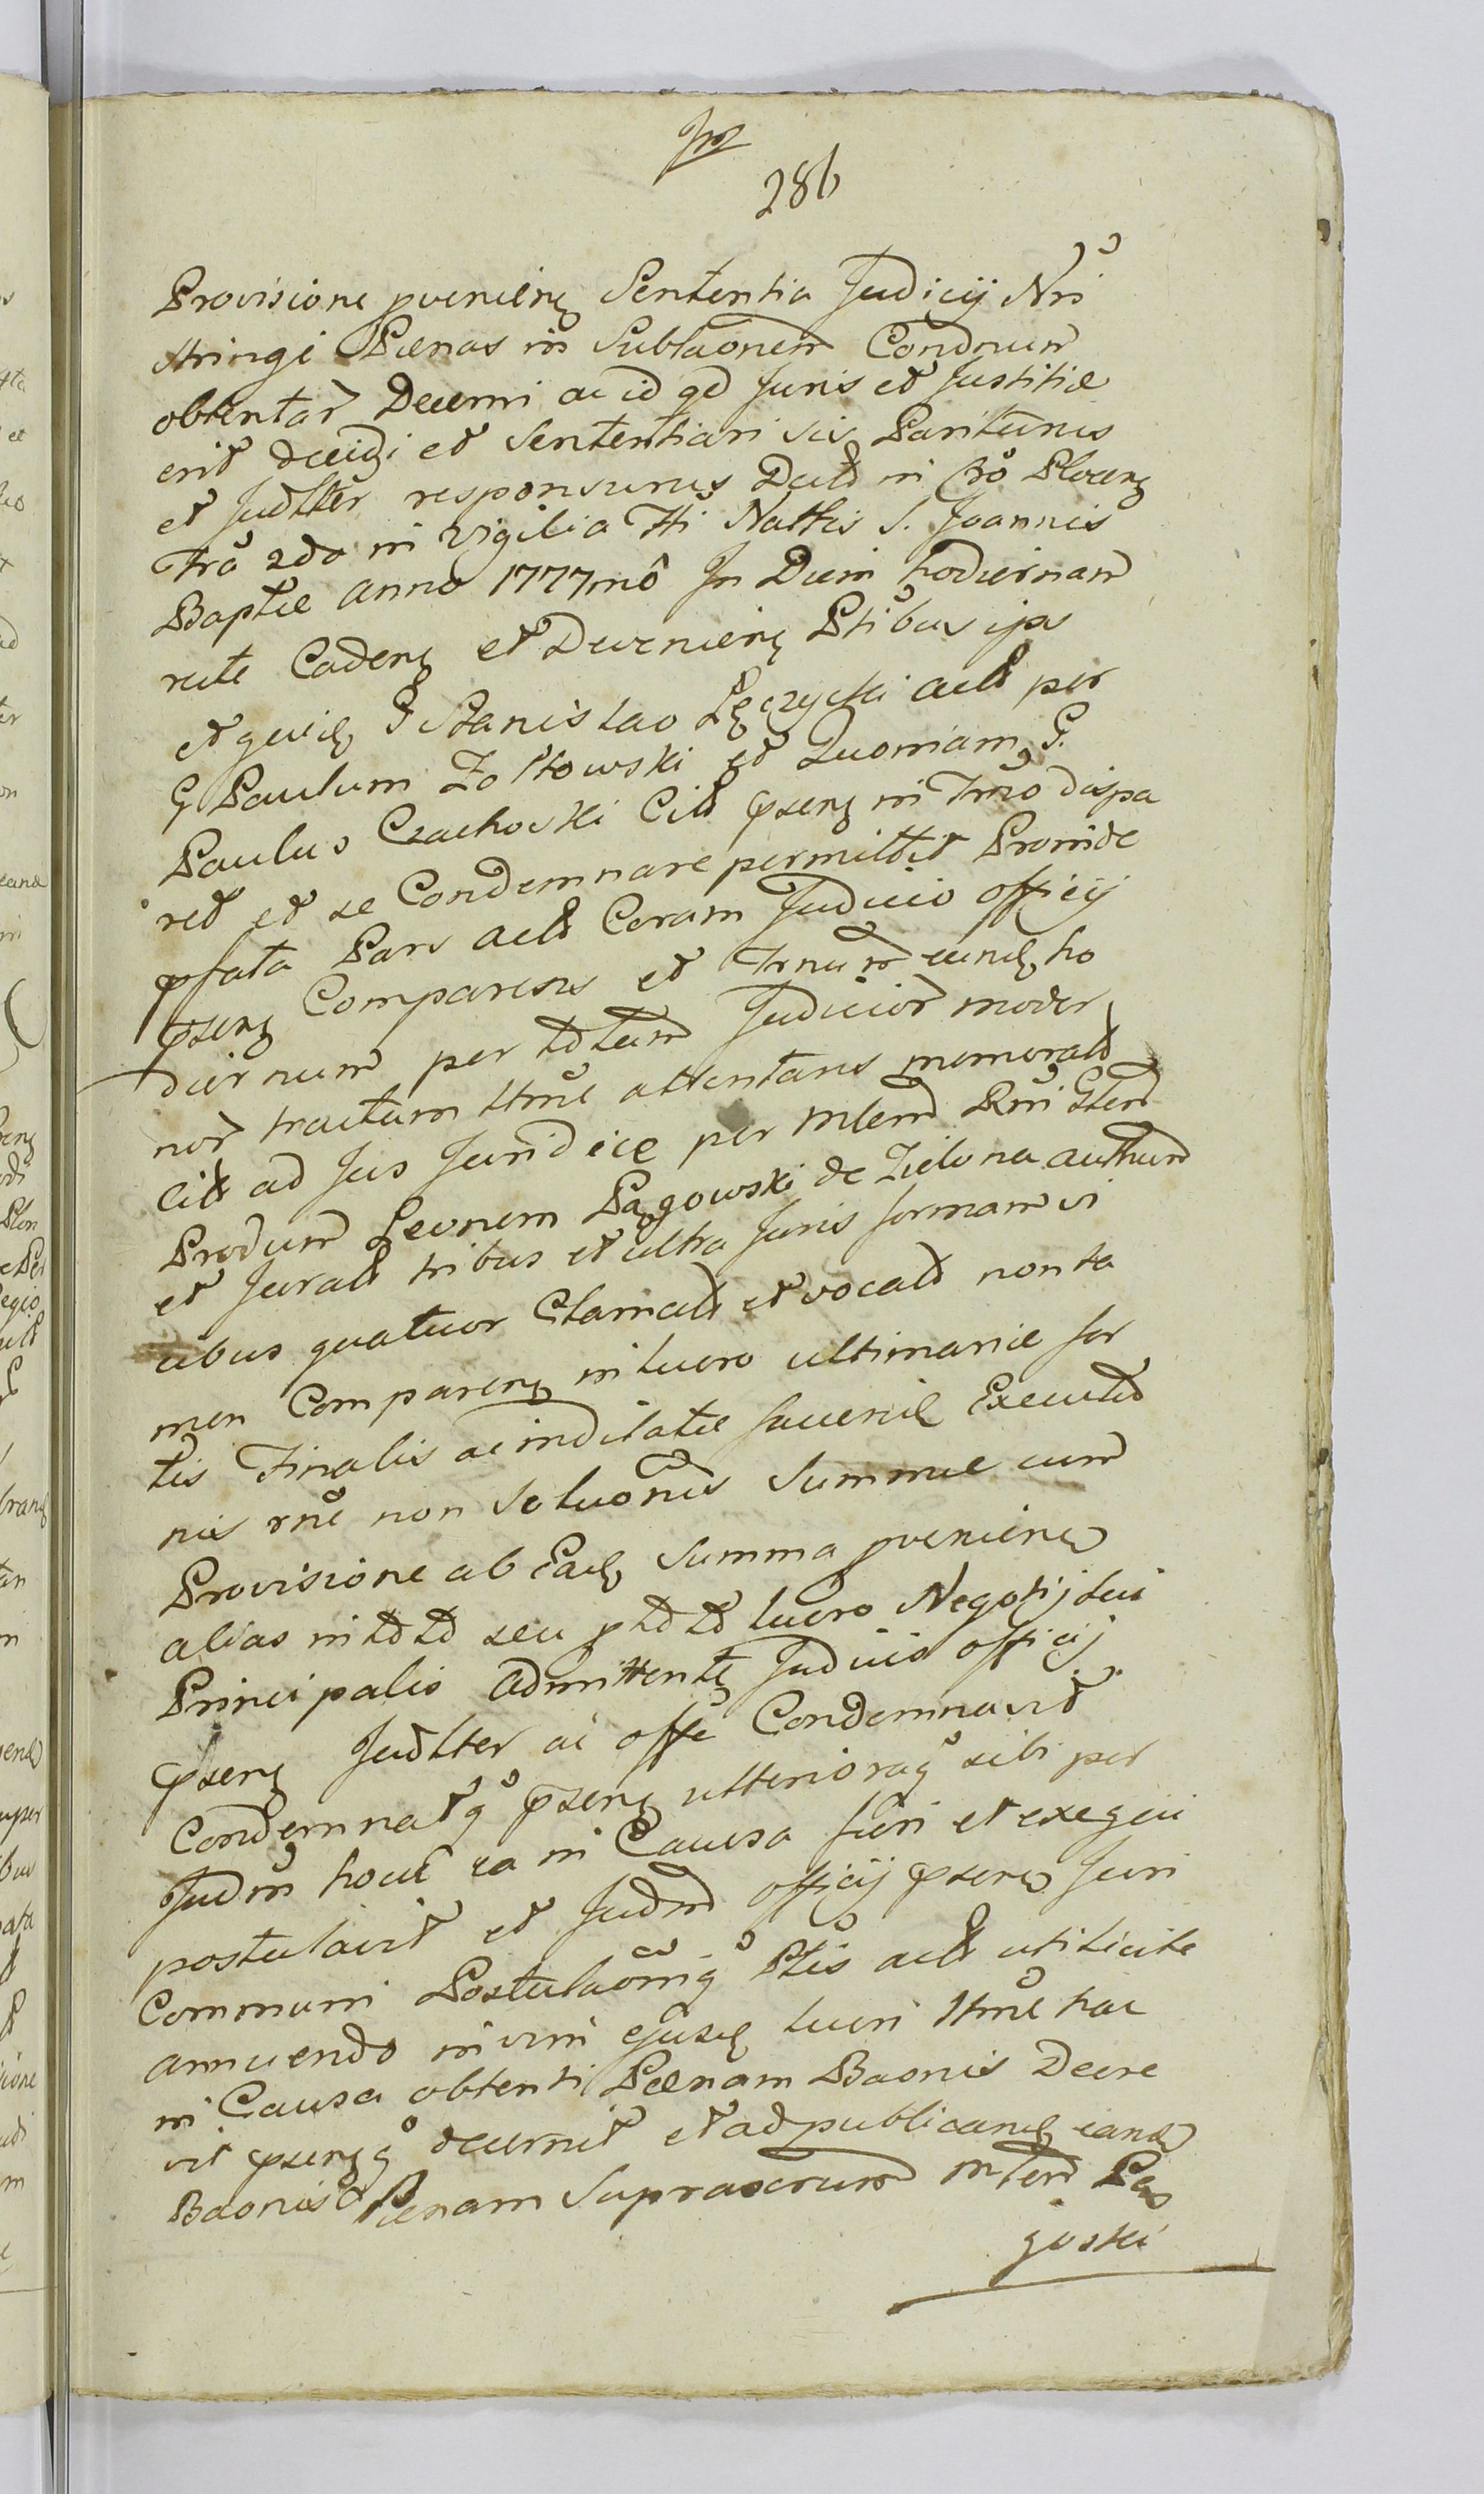 286
Provisione pvenien Sententia Judicij Nri
stringi Pænas in Sublaonem Condnum
obtentar Decerni ac id qd Juris et Justitiæ
erit decidi et Sententiari sis Pariturus
et Judlter responsurus Datt in Cro Plocen
fra 2da in Vigilia Fti Nattis S. Joannis
Baptæ anno 1777mo In Diem hodiernam
rite Caden et Devenien Ptibus ijs
et quid G Stanislao Łęczycki actt per
G Paulum Zołtowski et Quoniam G.
Paulus Czachoski Citt psens in Trno dispa
ret et se Condemnare permittit Proinde
pfata Pars actt Coram Judicio officij
psens Comparens et Trnum eund ho
diernum per tdtum Judicior moder
nor tractum ttme attentans memoratt
citt ad Jus Juridice per mlem Rni Gten
Prodm Leonem Pągowski de Zielona authum
et Juratt tribus et ultra Juris formam vi
cibus quatuor Clamatt et vocatt non ta
men Comparen in lucro ultimariæ sor
tis Finalis ac indilatæ suæ executo
nis rne non Soluonis Summæ cum
Provisione ab Ead Summa pvenien
alias in td td seu p td td lucro Negotij sui
Principalis admittente Judicio officij
psens Judlter ac offe Condemnavit
Condemnatq psens ulterioraq sibi per
Judm hoce ea in Causa fieri et exequi
postulavit et Judm officij psens Juri
Communi Postulaoniq Ptis actt utilicite
annuendo in vim ejusd lucri ttme hac
in Causa obtenti Pænam Baonis Decre
vit psensq decernit et ad publicand eand
Baonis Pænam Suprascrum mlem Pą
goski